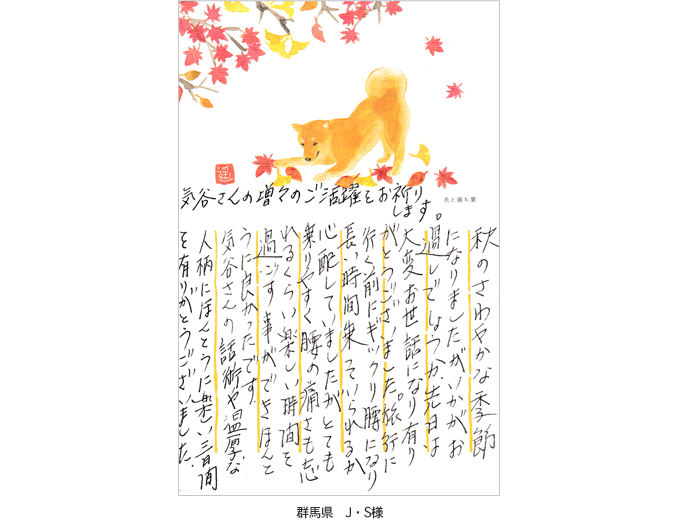 気谷さんの増々のご活躍をお祈り
します。
犬と落ち葉
秋のさわやかな季節
になりましたがいかがお
過しでしょうか先日は
大変お世話になり有り
がとうございました。旅行に
行く前にギックリ腰になり
長い時間乗っていられるか
心配していましたがとても
乗りやすく腰の痛さも忘
れるくらい楽しい時間を
過ごす事ができほんと
うに良かったです。
気谷さんの話術や温厚な
人柄にほんとうに楽しい三日間
を有りがとうございました。
群馬県 J・S様